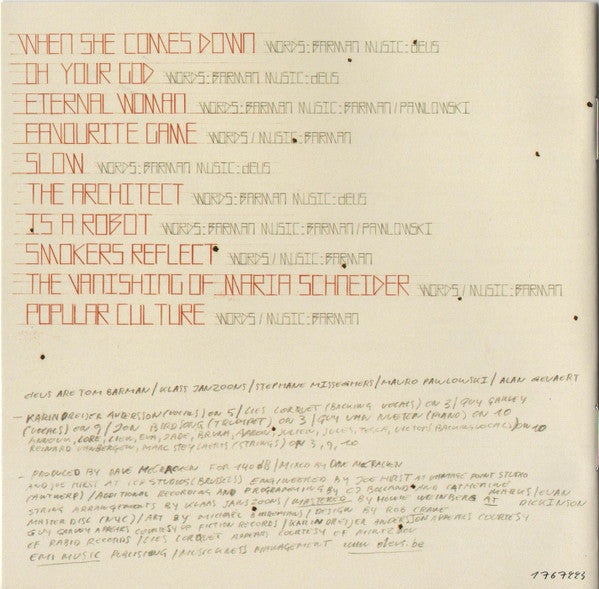 WHEN SHE COMES DOWN WORDS: BARMAN MUSIC: dEUS
OH YOUR GOD WORDS: BARMAN MUSIC: dEUS
ETERNAL WOMAN WORDS: BARMAN MUSIC: BARMAN/PAWLOWSKI
FAVOURITE GAME WORDS/MUSIC: BARMAN
SLOW WORDS: BARMAN MUSIC: dEUS
THE ARCHITECT WORDS: BARMAN MUSIC: dEUS
IS A ROBOT WORDS: BARMAN MUSIC: BARMAN/PAWLOWSKI
SMOKERS REFLECT WORDS/MUSIC: BARMAN
THE VANISHING OF MARIA SCHNEIDER WORDS/MUSIC: BARMAN
POPULAR CULTURE WORDS/MUSIC: BARMAN
dEUS ARE TOM BARMAN/KLAAS JANZOONS/STEPHANE MISSEGHERS/MAURO PAWLOWSKI/ALAN GEVAERT
- KARIN DREIJER ANDERSSON (VOCALS) ON 5/LIES LORQUET (BACKING VOCALS) ON 3/GUY GARVEY
(VOCALS) ON 9/JON BIRDSONG (TRUMPET) ON 3/GUY VAN NUETEN (PIANO) ON 10
LORE, LIEN, EVA, JADE, BRUNA, JULIEN, JULES, (BACKING VOCALS) ON 10
MARC STEYLAERTS (STRINGS) ON 3, 9, 10
- PRODUCED BY DAVE McCRACKEN FOR 140dB/MIXED BY DAVE McCRACKEN
AND JOE HIRST AT ICP STUDIOS (BRUSSELS) ENGINEERED BY JOE HIRST AT VANTAGE POINT STUDIO
(ANTWERP)/ADDITIONAL RECORDING AND PROGRAMMING BY CJ BOLLAND AND
STRING ARRANGEMENTS BY KLAAS JANZOONS/MASTERED BY HOWIE WEINBERG AT
MASTER DISC (NYC)/ART BY MICHAEL BORREMANS/DESIGN BY ROB CRANE DICKINSON
GUY GARVEY APPEARS COURTESY OF FICTION RECORDS/KARIN DREIJER ANDERSSON APPEARS COURTESY
OF RABID RECORDS/LIES LORQUET APPEARS COURTESY OF
EMI MUSIC PUBLISHING/MUSICKNESS MANAGEMENT www.deus.be